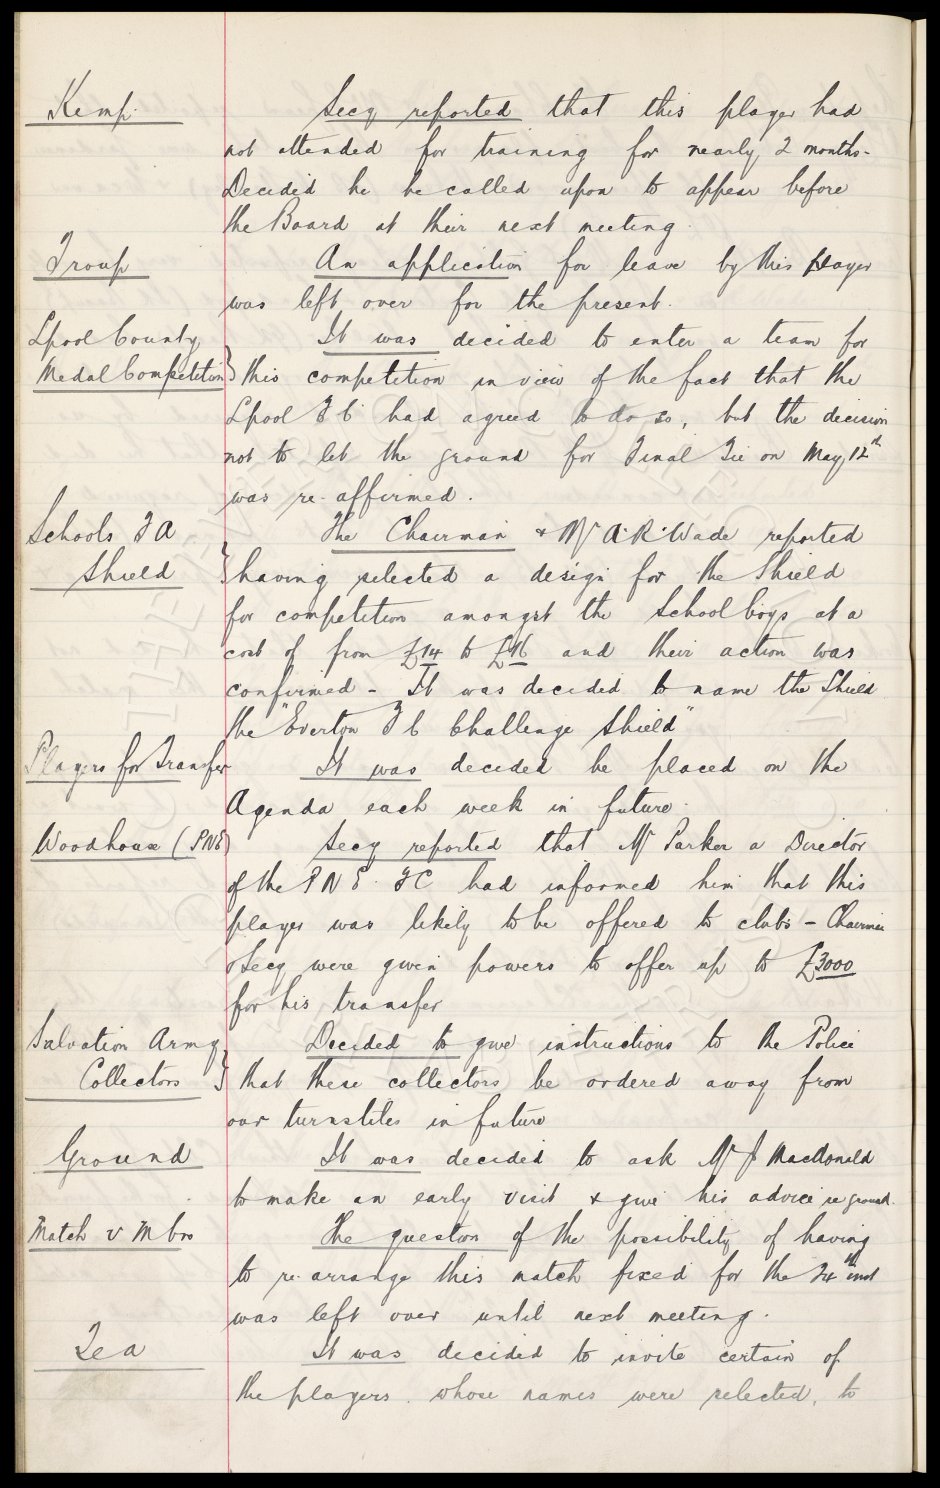 Kemp.
Secy reported that this player had
not attended for training for nearly 2 months.
Decided he be called upon to appear before
the Board at their next meeting.
Troup
An application for leave by this player
was left over for the present.
Lpool County
Medal Competition
It was decided to enter a team for
this competition in view of the fact that the
Lpool F C had agreed to do so, but the decision
not to let the ground for Final Tie on May 12th
was re-affirmed.
Schools F A
Shield
The Chairman & Mr A.R. Wade reported
having selected a design for the Shield
for competition amongst the School boys at a
cost of from £14 to £16 and their action was
confirmed - It was decided to name the Shield
the "Everton F C Challenge Shield"
Players for Transfer
It was decided be placed on the
Agenda each week in future.
Woodhouse (PNE)
Secy reported that Mr Parker a Director
of the P N E. F C had informed him that this
player was likely to be offered to clubs - Chairman
& Secy were given powers to offer up to £3000
for his transfer
Salvation Army
Collectors
Decided to give instructions to the Police
that these collectors be ordered away from
our turnstiles in future
Ground
It was decided to ask Mr J MacDonald
to make an early visit & give his advice re ground.
Match v M bro
The question of the possibility of having
to re-arrange this match fixed for the 24th inst
was left over until next meeting.
Tea
It was decided to invite certain of
the players, whose names were selected, to